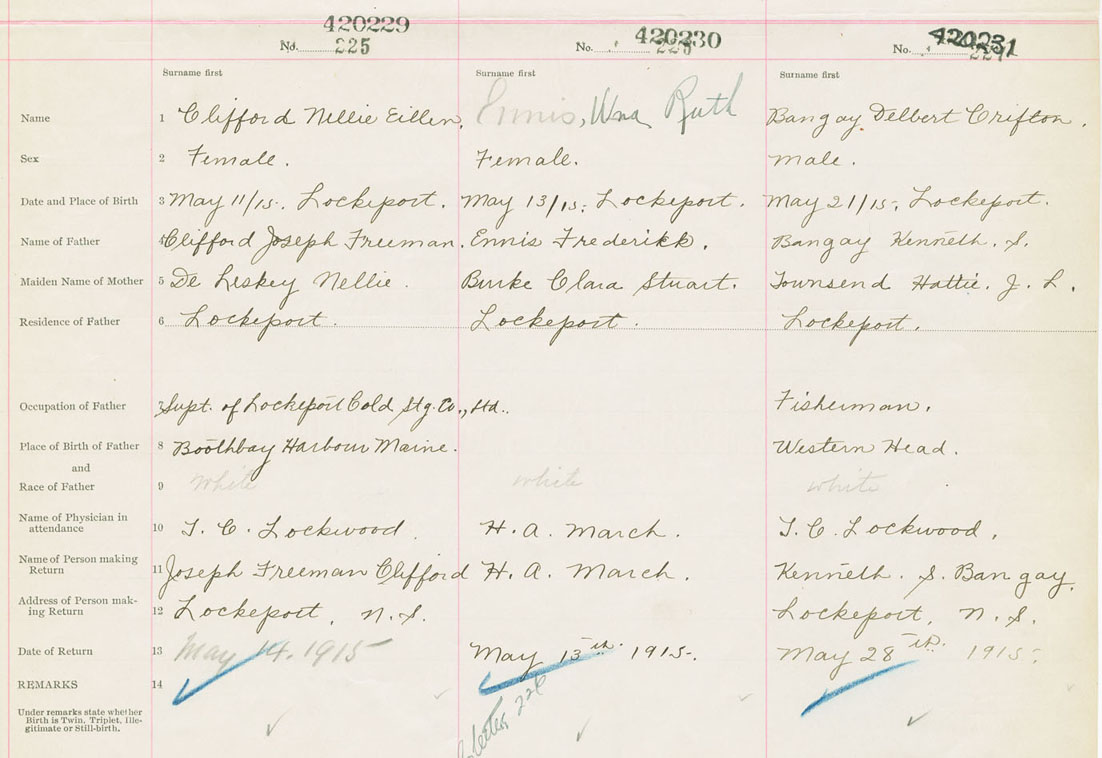 420229 420230 420231
No. 225 No. No.
Surname first Surname first Surname first
Name 1 Clifford Nellie Eillen, Ennis, Una Ruth Bangay Delbert Crifton.
Sex 2 Female. Female. male.
Date and Place of Birth 3 May 11/15. Lockeport. May 13/15; Lockeport. May 21/15; Lockeport.
Name of Father 4 Clifford Joseph Freeman. Ennis Frederikk. Bangay Kenneth. S.
Maiden Name of Mother 5 De Leskey Nellie. Burke Clara Stuart. Townsend Hattie. J. L.
Residence of Father 6 Lockeport. Lockeport. Lockeport.
Occupation of Father 7 Supt. of Lockeport Cold Stg. Co., Ltd.. Fisherman.
Place of Birth of Father 8 Boothbay Harbour Maine. Western Head.
and
Race of Father 9 White white white
Name of Physician in
attendance 10 T. C. Lockwood. H. A. March. T. C. Lockwood.
Name of Person making
Return 11 Joseph Freeman Clifford H. A. March. Kenneth. S. Bangay.
Address of Person mak-
ing Return 12 Lockeport, N. S. Lockeport, N. S.
Date of Return 13 May 14. 1915 May 13th. 1915. May 28th. 1915.
REMARKS 14
Under remarks state whether
Birth is Twin, Triplet, Ille-
gitimate or Still-birth.
Letter 226